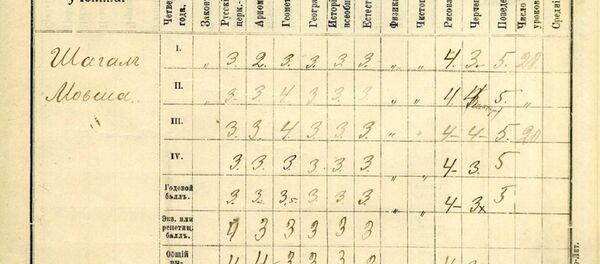 Четве
года.
Закон
Русск
церк.-
Ариѳм
Геомет
Геогра
Истор
всеобщ
Естест
Физика
Чистоп
Рисова
Черче
Поведе
Число
уроков
Средні
Шагалъ
Мовша.
I. „ 3. 2. 3. 3. 3. 3. „ „ 4. 3. 5. 20
II. „ 3. 3. 4 3. 3. 3. „ „ 4 4 5. „
III. „ 3 3. 4 3. 3. 3. „ „ 4- 4- 5. 20
IV. 3. 3. 3. 3. 3. 3. „ „ 4- 3. 5
Годовой
баллъ. 3. 3. 3. 3. 3. 3. „ „ 4- 3 5
Экз. или
репетиц.
баллъ. 4 3 3 3 3 3
Общій
вы-